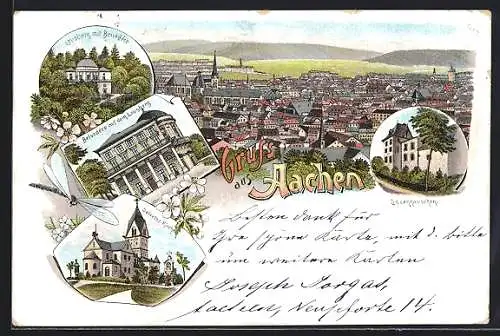 Lousberg mit Belvedere
Belvedere auf dem Lousberg
Gruss
aus Aachen
besten Dank für
Ihre schöne Karte, mit d. bitte
um weitere Karten
Joseph Jorgas,
Saalfeld, Neupforte 14.